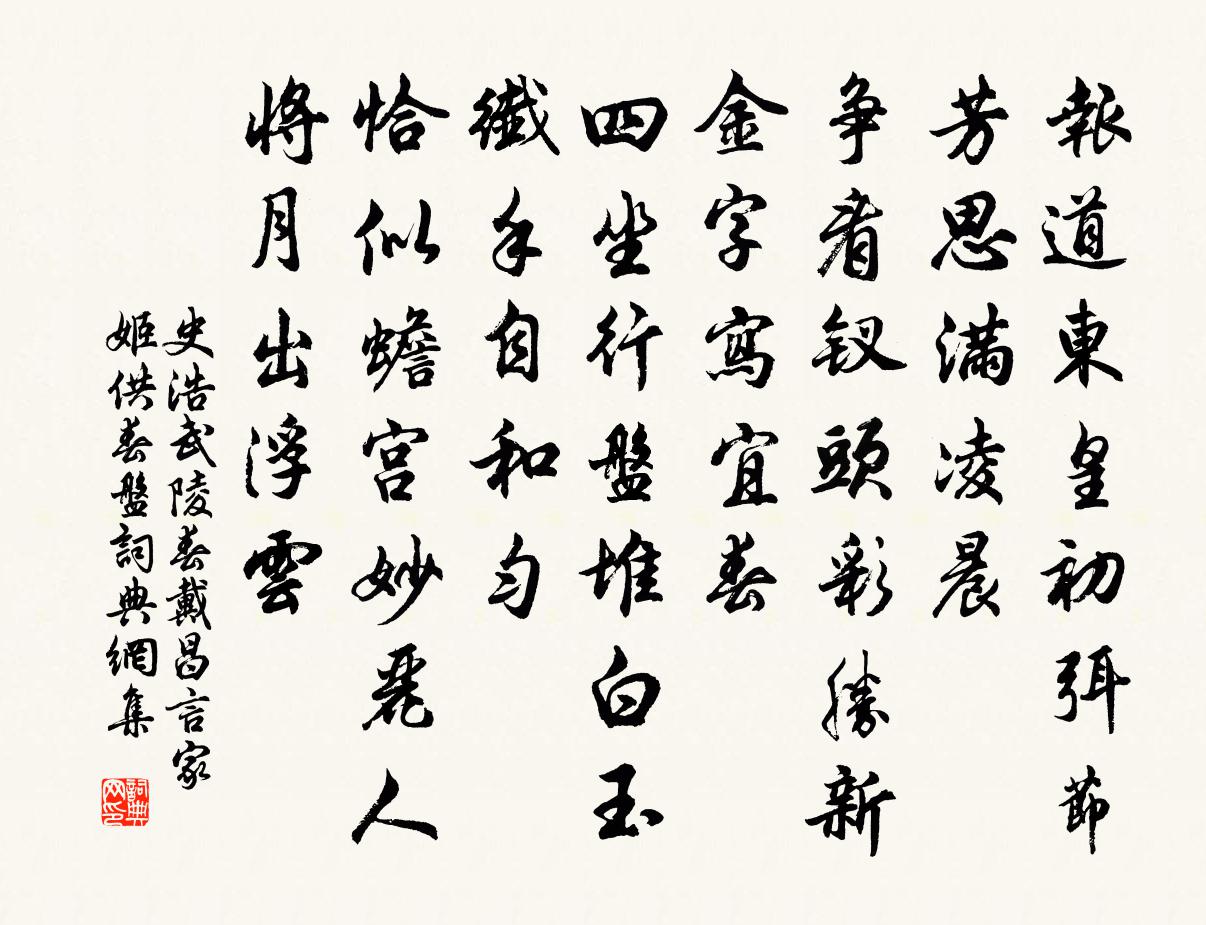 報道東皇初弭節
芳思滿凌晨
争看釵頭彩勝新
金字寫宜春
四坐行盤堆白玉
纖手自和勻
恰似蟾宮妙麗人
將月出浮雲
史浩武陵春戴昌言家
姬供春盤詞典網集
詞典网印